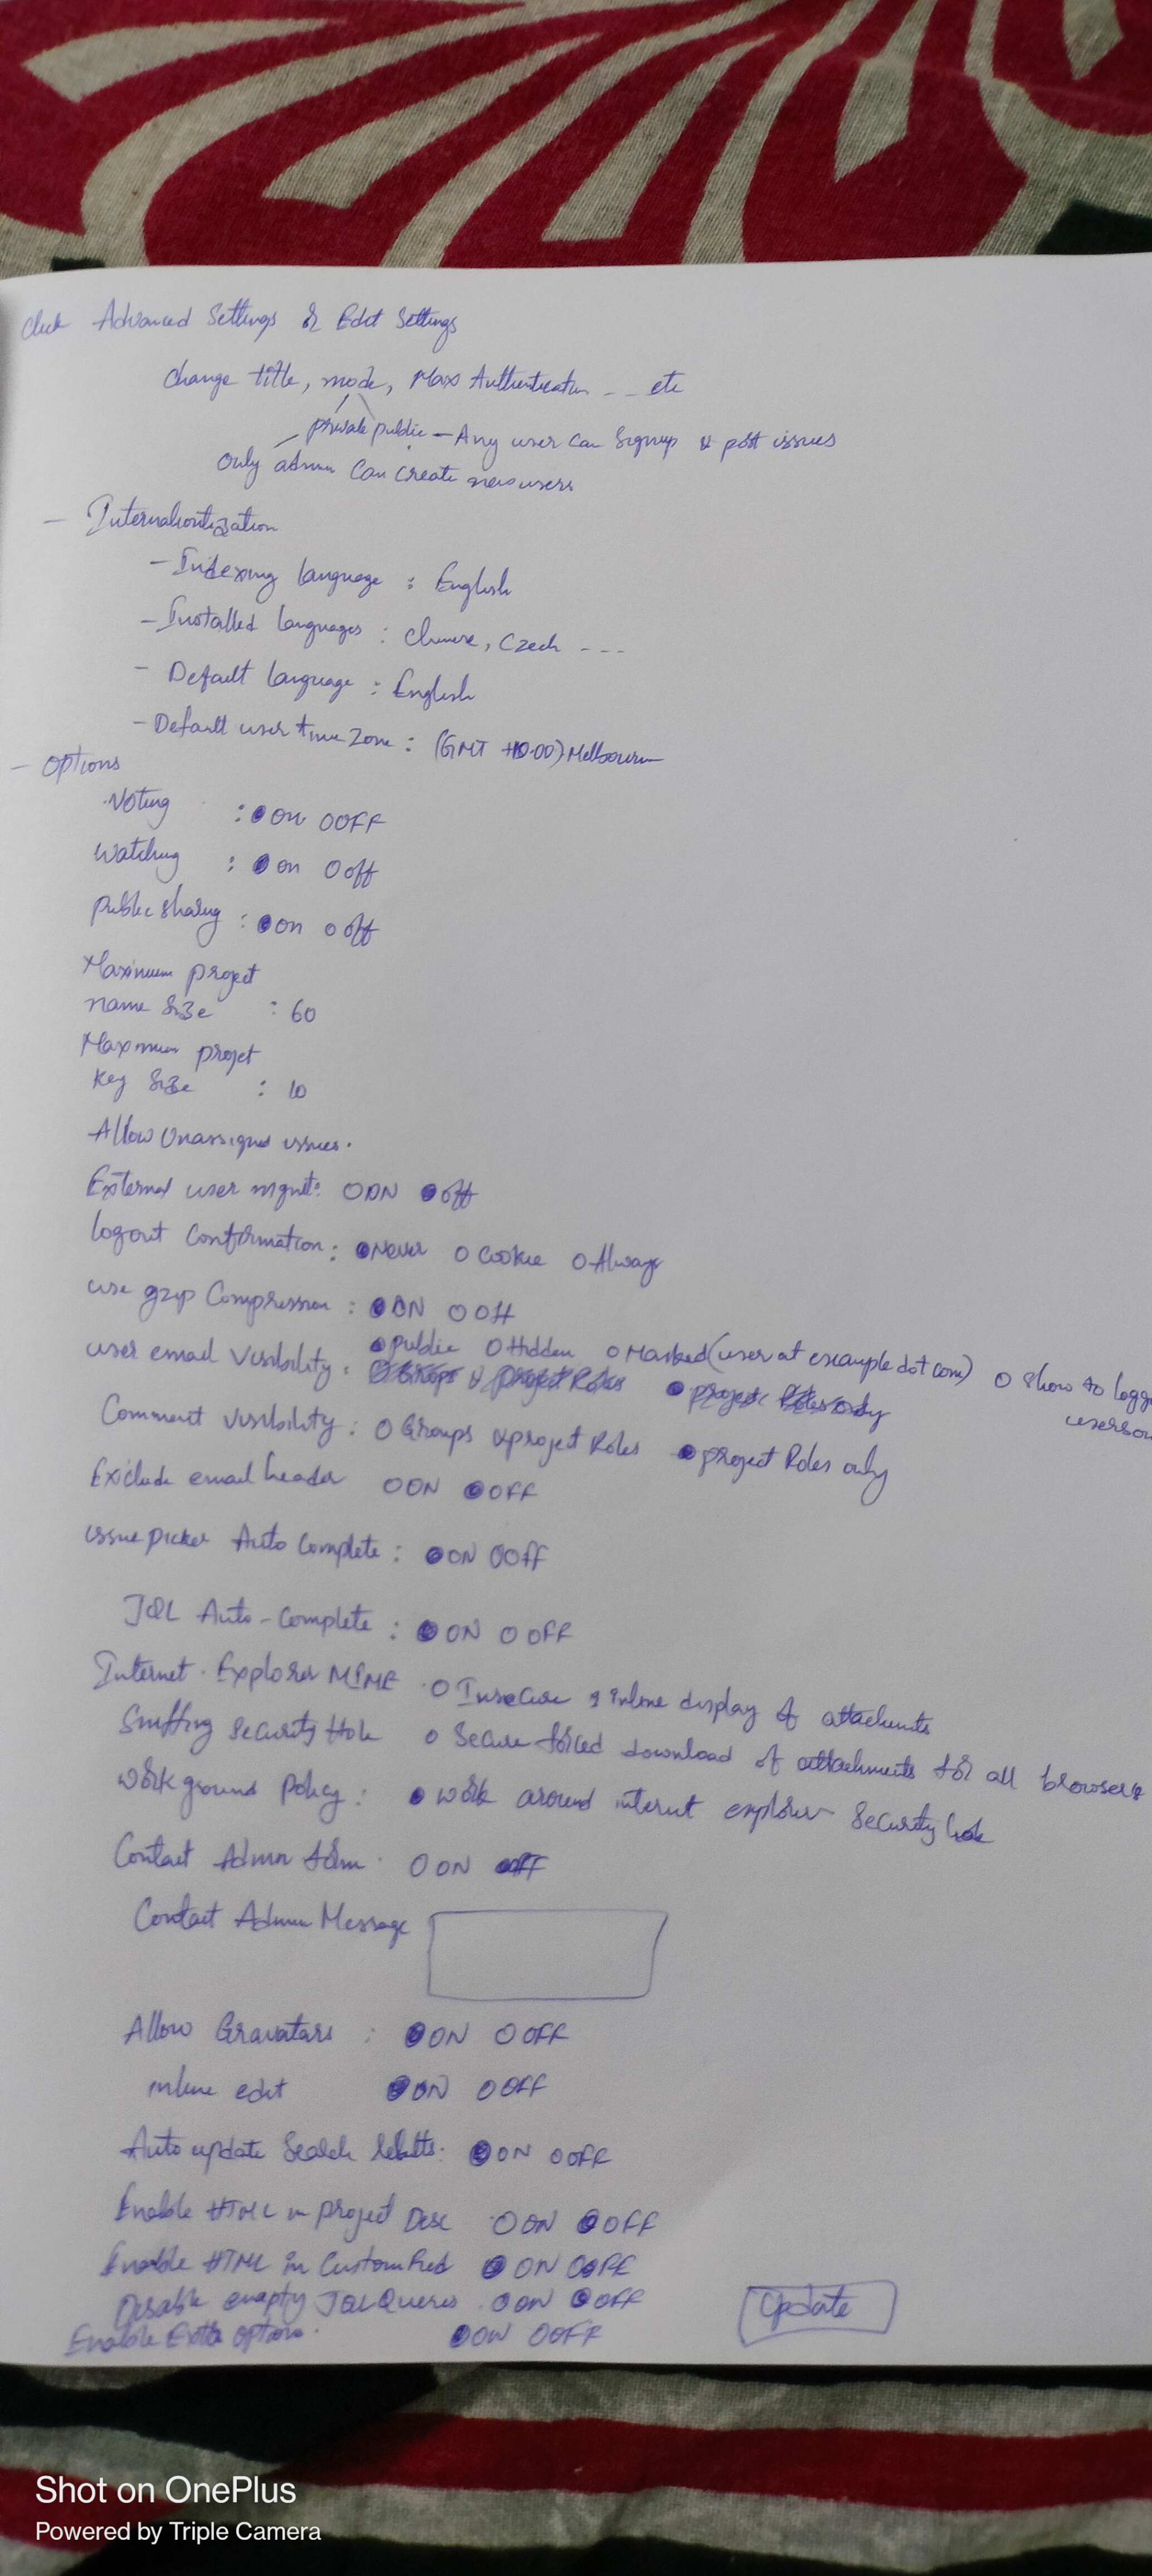 Click Advanced Settings & Edit Settings
change title, mode, Max Authentication ... etc
private public - Any user can Signup & post issues
only admin can create new users
- Internationtization
- Indexing language : English
- Installed languages : Chinese, Czech ---
- Default language : English
- Default user time zone : (GMT +10.00) Melbourn
- Options
Voting : ● ON O OFF
Watching : ● on O off
public sharing : ● on o off
Maximum project
name size : 60
Maximum projet
key size : 10
Allow Unassigned issues.
External user mgmt: O ON ● off
logout Confirmation : ● Never O Cookie O Always
use gzip Compression : ● ON O Off
user email visibility : ● public O Hidden O Masked (user at example dot com) O show to logg
users on
Comment visibility : O Groups & project Roles ● project Roles only
Exclude email header O ON ● OFF
issue picker Auto Complete : ● ON O OFF
JQL Auto-Complete : ● ON O OFF
Internet Explorer MIME O Insecure : inline display of attachments
Sniffing Security Hole o Secure forced download of attachments for all browsers
work ground policy : ● work around internet explorer security hole
Contact Admin form O ON ● OFF
Contact Admin Message
Allow Gravatars : ● ON O OFF
inline edit ● ON O OFF
Auto update Search : ● ON O OFF
Enable HTML in project Desc O ON ● OFF
Enable HTML in Custom ● ON O OFF
Disable empty JQL Queries O ON ● OFF
Update
Enable Extra options. ● ON O OFF
Shot on OnePlus
Powered by Triple Camera